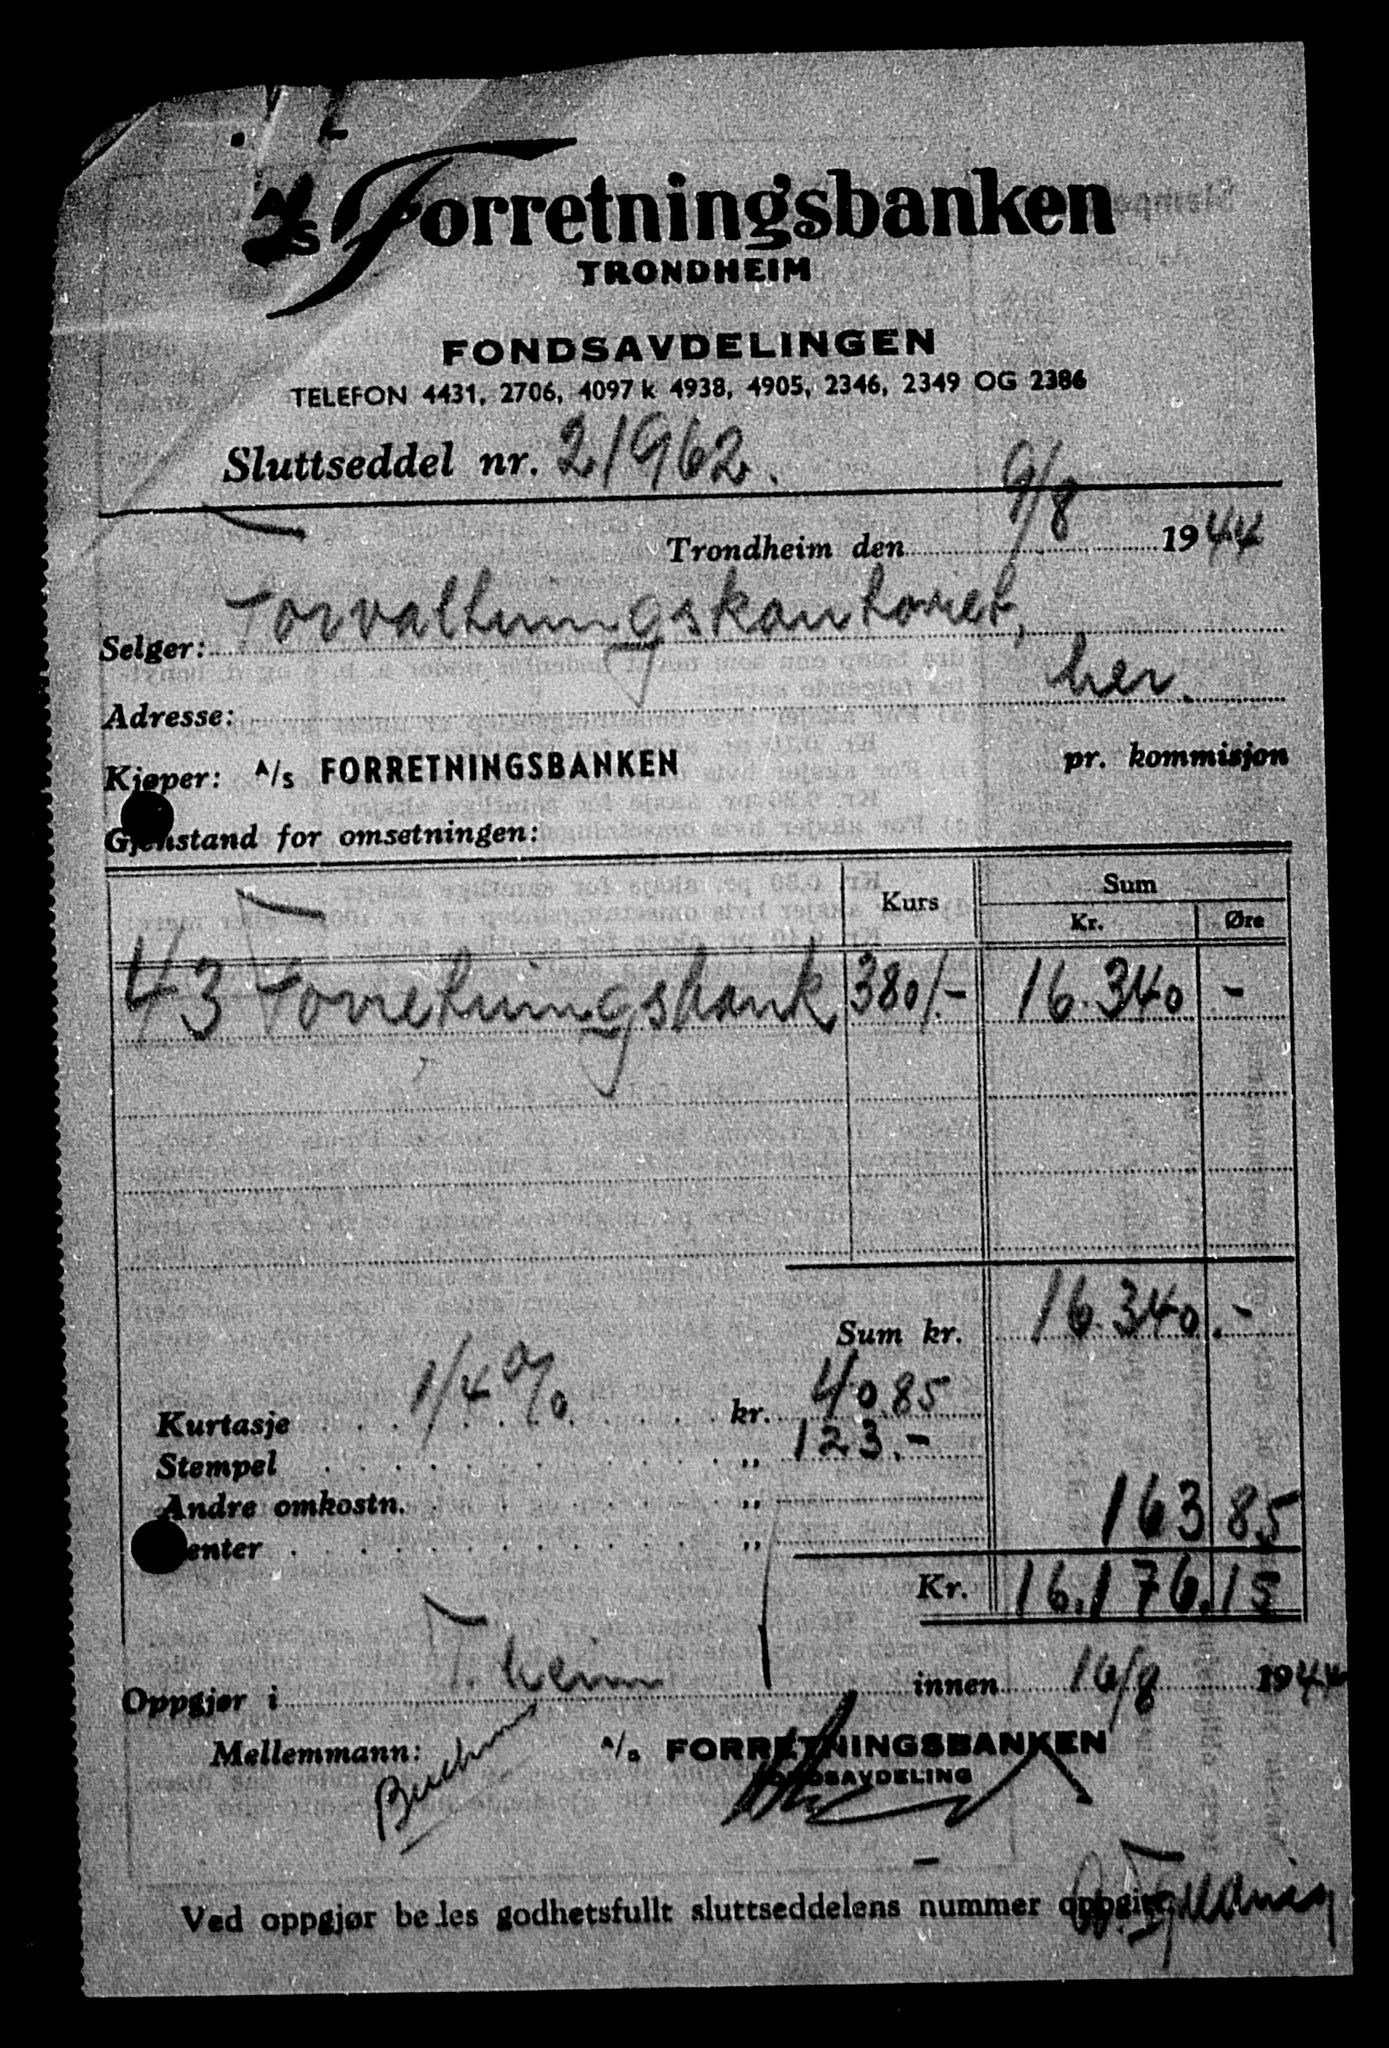 A/s Forretningsbanken
TRONDHEIM
FONDSAVDELINGEN
TELEFON 4431, 2706, 4097 k 4938, 4905, 2346, 2349 OG 2386
Sluttseddel nr. 21962.
Trondheim den 9/8 1944
Selger: Forvaltningskontoret,
Adresse: her.
Kjøper: A/s FORRETNINGSBANKEN pr. kommisjon
Gjenstand for omsetningen:
Kurs Sum
Kr. Øre
43 Forretningsbank 380/- 16.340 -
Sum kr. 16.340.-
Kurtasje 1/4 % kr. 40.85
Stempel „ 123.-
Andre omkostn. „ 163 85
enter „
Kr. 16.176.15
Oppgjør i T.heim innen 16/8 1944
Mellemmann: A/s FORRETNINGSBANKEN
FONDSAVDELING
Ved oppgjør bedes godhetsfullt sluttseddelens nummer oppgitt